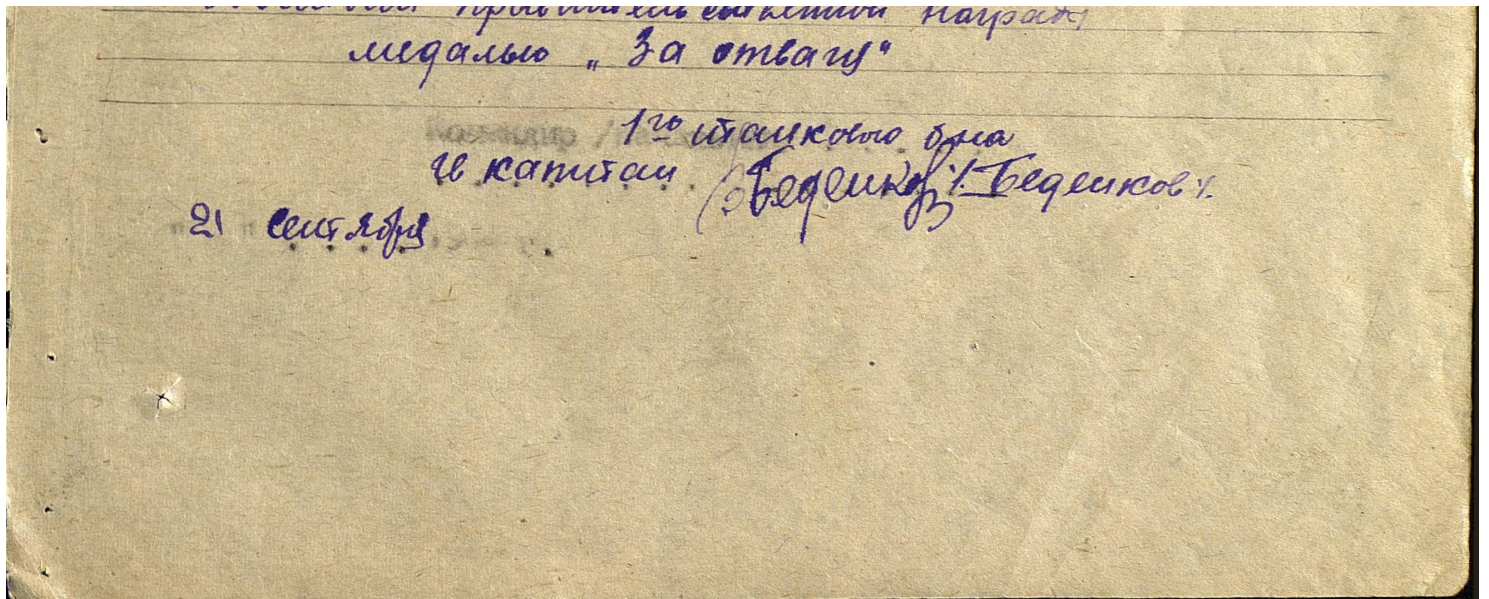 правительственной награды
медалью „За отвагу"
1го танкового б-на
гв капитан Беденков /Беденков/.
21 сентября